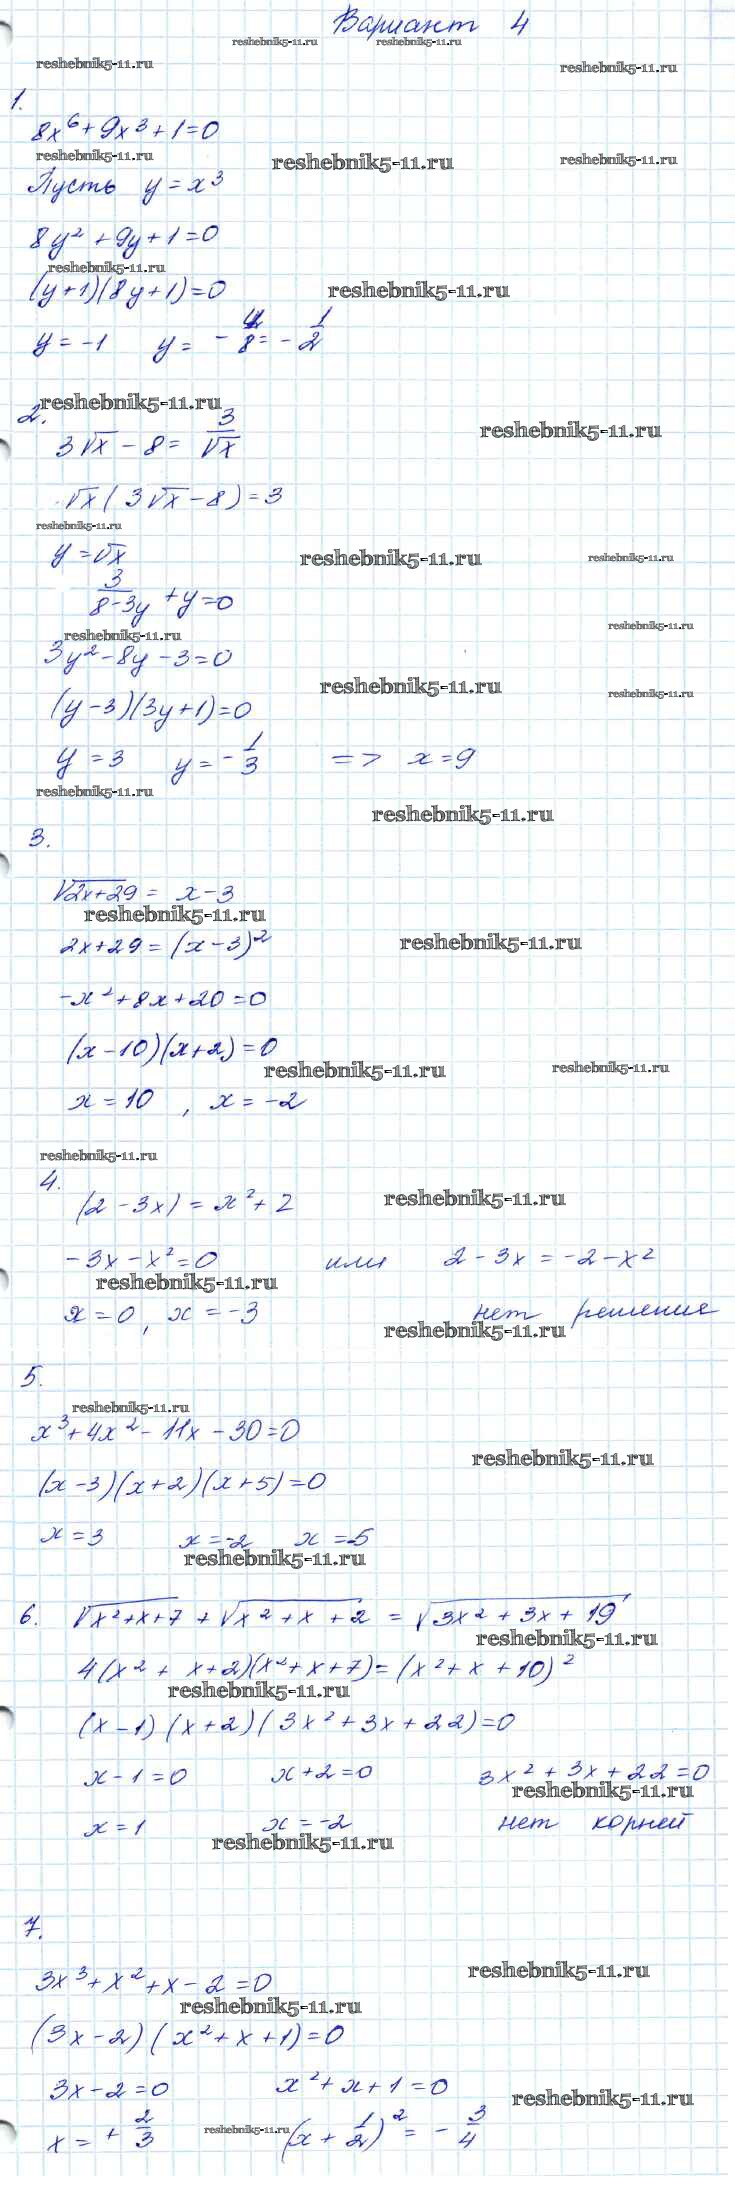 Вариант 4
reshebnik5-11.ru reshebnik5-11.ru
reshebnik5-11.ru reshebnik5-11.ru
1.
8x⁶ + 9x³ + 1 = 0
reshebnik5-11.ru reshebnik5-11.ru reshebnik5-11.ru
Пусть y = x³
8y² + 9y + 1 = 0
reshebnik5-11.ru
(y + 1)(8y + 1) = 0 reshebnik5-11.ru
y = -1 y = - /8 = - 1/2
reshebnik5-11.ru
2. 3√x - 8 = 3/√x reshebnik5-11.ru
√x (3√x - 8) = 3
reshebnik5-11.ru
y = √x reshebnik5-11.ru reshebnik5-11.ru
3/(8-3y) + y = 0
reshebnik5-11.ru reshebnik5-11.ru
3y² - 8y - 3 = 0
reshebnik5-11.ru reshebnik5-11.ru
(y - 3)(3y + 1) = 0
y = 3 y = - 1/3 => x = 9
reshebnik5-11.ru
reshebnik5-11.ru
3.
√(2x+29) = x - 3
reshebnik5-11.ru
2x + 29 = (x - 3)² reshebnik5-11.ru
-x² + 8x + 20 = 0
(x - 10)(x + 2) = 0
reshebnik5-11.ru reshebnik5-11.ru
x = 10 , x = -2
reshebnik5-11.ru
4. (2 - 3x) = x² + 2 reshebnik5-11.ru
-3x - x² = 0 или 2 - 3x = -2 - x²
reshebnik5-11.ru
x = 0 , x = -3 нет решение
reshebnik5-11.ru
5.
reshebnik5-11.ru
x³ + 4x² - 11x - 30 = 0
reshebnik5-11.ru
(x - 3)(x + 2)(x + 5) = 0
x = 3 x = -2 x = -5
reshebnik5-11.ru
6. √(x² + x + 7) + √(x² + x + 2) = √(3x² + 3x + 19)
reshebnik5-11.ru
4(x² + x + 2)(x² + x + 7) = (x² + x + 10)²
reshebnik5-11.ru
(x - 1)(x + 2)(3x² + 3x + 22) = 0
x - 1 = 0 x + 2 = 0 3x² + 3x + 22 = 0
reshebnik5-11.ru
x = 1 x = -2 нет корней
reshebnik5-11.ru
7.
3x³ + x² + x - 2 = 0 reshebnik5-11.ru
reshebnik5-11.ru
(3x - 2)(x² + x + 1) = 0
3x - 2 = 0 x² + x + 1 = 0 reshebnik5-11.ru
x = + 2/3 reshebnik5-11.ru (x + 1/2)² = - 3/4